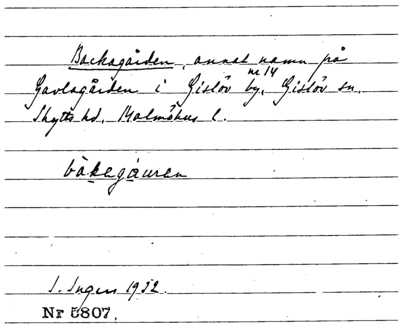 Backagården, annat namn på
Gavlagården i Gislöv by, nr 14 Gislöv sn.
Skytts hd, Malmöhus l.
bàkegåuren
S. Ingers 1932.
Nr 5807.